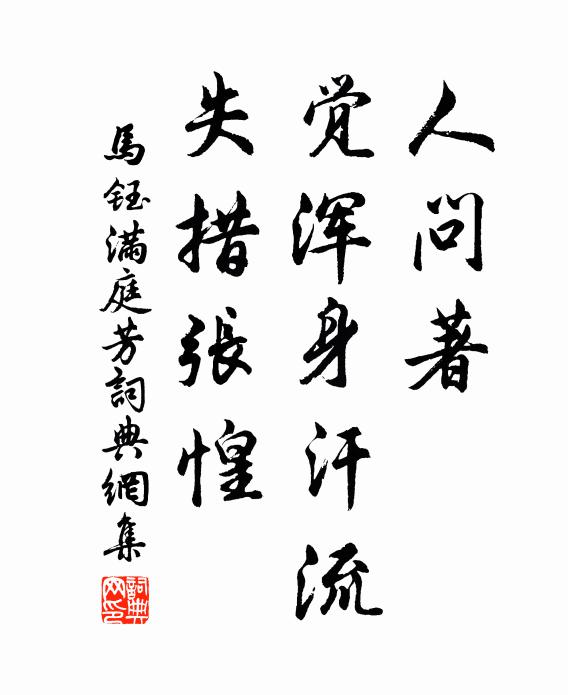 人问著
觉浑身汗流
失措張惶
馬鈺滿庭芳詞典網集
詞典网印